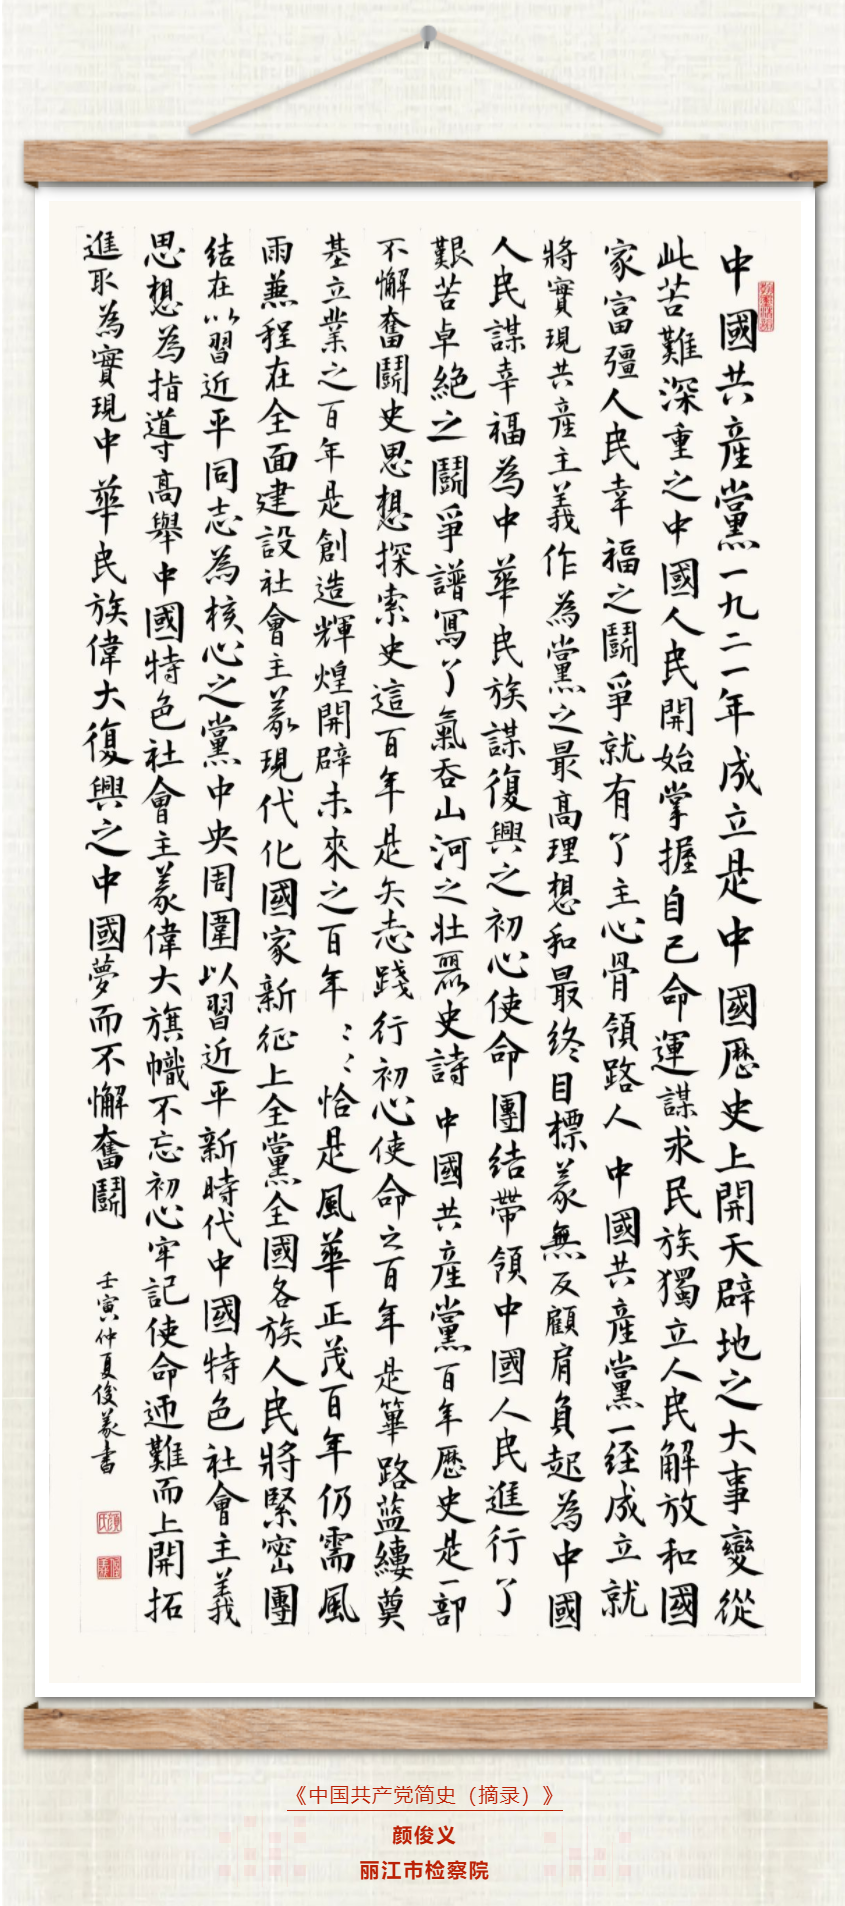 中國共産黨一九二一年成立是中國歷史上開天辟地之大事變從
此苦難深重之中國人民開始掌握自己命運謀求民族獨立人民解放和國
家富彊人民幸福之鬭爭就有了主心骨領路人中國共産黨一经成立就
將實現共産主義作為黨之最高理想和最終目標義無反顧肩負起為中國
人民謀幸福為中華民族謀復興之初心使命團结帶領中國人民進行了
艱苦卓絕之鬭爭譜寫了氣吞山河之壯麗史詩中國共産黨百年歷史是一部
不懈奮鬭史思想探索史這百年是矢志踐行初心使命之百年是篳路蓝縷奠
基立業之百年是創造輝煌開辟未來之百年……恰是風華正茂百年仍需風
雨兼程在全面建設社會主義現代化國家新征上全黨全國各族人民將緊密團
结在以習近平同志為核心之黨中央周圍以習近平新時代中國特色社會主義
思想為指導高舉中國特色社會主義偉大旗幟不忘初心牢記使命迎難而上開拓
進取為實現中華民族偉大復興之中國夢而不懈奮鬭
壬寅仲夏俊義書
《中国共产党简史（摘录）》
颜俊义
丽江市检察院